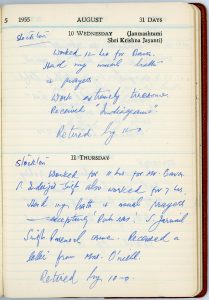 5 1955 AUGUST 31 DAYS
10 WEDNESDAY (Janmashtami
Shri Krishna Jayanti)
Stockton
Worked 12 hrs for Bawa.
Had my usual bath
& prayers
Work extremely tiresome.
Received "Indiagram"
Retired by 11-0.
11 THURSDAY
Stockton
Worked for 11 hrs for Mr. Bawa.
S. Inderjit Singh also worked for 7 hrs.
Had my bath & usual prayers
excepting Rehras. S. Jarnail
Singh Parasool came. Received a
letter from Mrs. O'Neill.
Retired by 10-0.